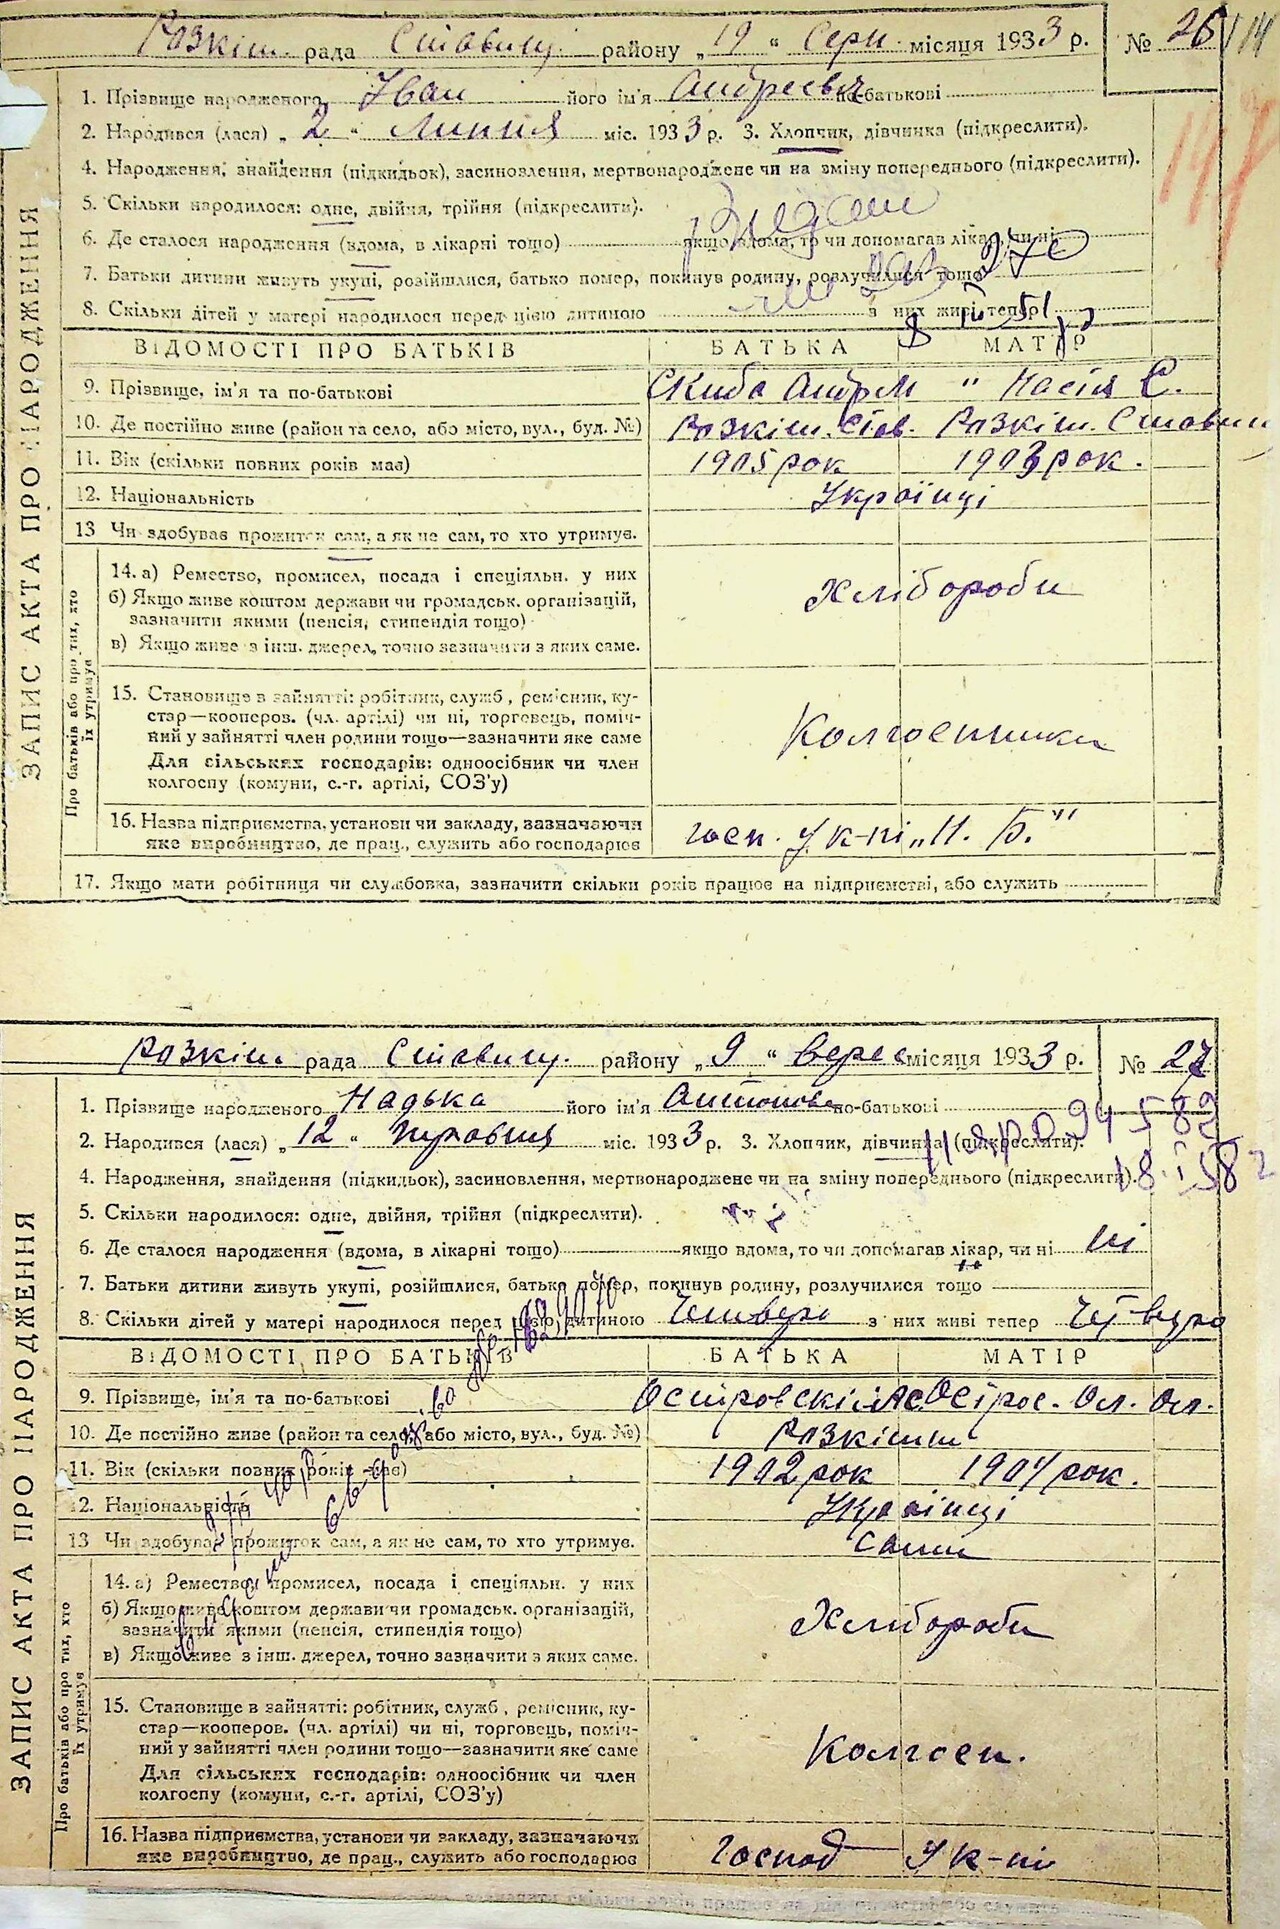 Розкіш. рада Ставищ. району „19“ Серп. місяця 1933 р. № 26
1. Прізвище народженого Іван його ім'я Андреевич по-батькові
2. Народився (лася) „2“ Липня міс. 1933 р. 3. Хлопчик, дівчинка (підкреслити).
4. Народження, знайдення (підкидьок), засиновлення, мертвонароджене чи на зміну попереднього (підкреслити).
5. Скільки народилося: одне, двійня, трійня (підкреслити).
6. Де сталося народження (вдома, в лікарні тощо) якщо вдома, то чи допомагав лікар, чи ні
7. Батьки дитини живуть укупі, розійшлися, батько помер, покинув родину, розлучилися тощо
8. Скільки дітей у матері народилося перед цією дитиною з них живі тепер
ВІДОМОСТІ ПРО БАТЬКІВ БАТЬКА МАТІР
9. Прізвище, ім'я та по-батькові Скиба Андр М „ Настя С.
10. Де постійно живе (район та село, або місто, вул., буд. №) Розкіш. Став. Розкіш. Ставищ
11. Вік (скільки повних років має) 1905 рок 1903 рок.
12. Національність Українці
13 Чи здобував прожиток сам, а як не сам, то хто утримує.
ЗАПИС АКТА ПРО НАРОДЖЕННЯ
Про батьків або про тих, хто їх утримує
14. а) Ремество, промисел, посада і спеціяльн. у них
б) Якщо живе коштом держави чи громадськ. організацій,
зазначити якими (пенсія, стипендія тощо)
в) Якщо живе з інш. джерел, точно зазначити з яких саме.
Хлібороби
15. Становище в зайнятті: робітник, служб, ремісник, ку-
стар—кооперов. (чл. артілі) чи ні, торговець, поміч-
ний у зайнятті член родини тощо—зазначити яке саме
Для сільських господарів: одноосібник чи член
колгоспу (комуни, с.-г. артілі, СОЗ'у)
Колгоспники
16. Назва підприємства, установи чи закладу, зазначаючи
яке виробництво, де прац., служить або господарює
госп. у к-пі „Н. Б.“
17. Якщо мати робітниця чи службовка, зазначити скільки років працює на підприємстві, або служить
Розкіш. рада Ставищ. району „9“ Верес місяця 1933 р. № 27
1. Прізвище народженого Надька його ім'я Антонова по-батькові
2. Народився (лася) „12“ міс. 1933 р. 3. Хлопчик, дівчинка (підкреслити).
4. Народження, знайдення (підкидьок), засиновлення, мертвонароджене чи на зміну попереднього (підкреслити).
5. Скільки народилося: одне, двійня, трійня (підкреслити).
6. Де сталося народження (вдома, в лікарні тощо) якщо вдома, то чи допомагав лікар, чи ні ні
7. Батьки дитини живуть укупі, розійшлися, батько помер, покинув родину, розлучилися тощо
8. Скільки дітей у матері народилося перед цією дитиною Четверо з них живі тепер Четверо
ВІДОМОСТІ ПРО БАТЬКІВ БАТЬКА МАТІР
9. Прізвище, ім'я та по-батькові Островскі Остров. Ол. Ол.
10. Де постійно живе (район та село, або місто, вул., буд. №) Розкішни
11. Вік (скільки повних років має) 1902 рок 1904 рок.
12. Національність Українці
13 Чи здобував прожиток сам, а як не сам, то хто утримує. Сами
ЗАПИС АКТА ПРО НАРОДЖЕННЯ
Про батьків або про тих, хто їх утримує
14. а) Ремество, промисел, посада і спеціяльн. у них
б) Якщо живе коштом держави чи громадськ. організацій,
зазначити якими (пенсія, стипендія тощо)
в) Якщо живе з інш. джерел, точно зазначити з яких саме.
Хлібороби
15. Становище в зайнятті: робітник, служб, ремісник, ку-
стар—кооперов. (чл. артілі) чи ні, торговець, поміч-
ний у зайнятті член родини тощо—зазначити яке саме
Для сільських господарів: одноосібник чи член
колгоспу (комуни, с.-г. артілі, СОЗ'у)
Колгосп.
16. Назва підприємства, установи чи закладу, зазначаючи
яке виробництво, де прац., служить або господарює
господ у к-пі